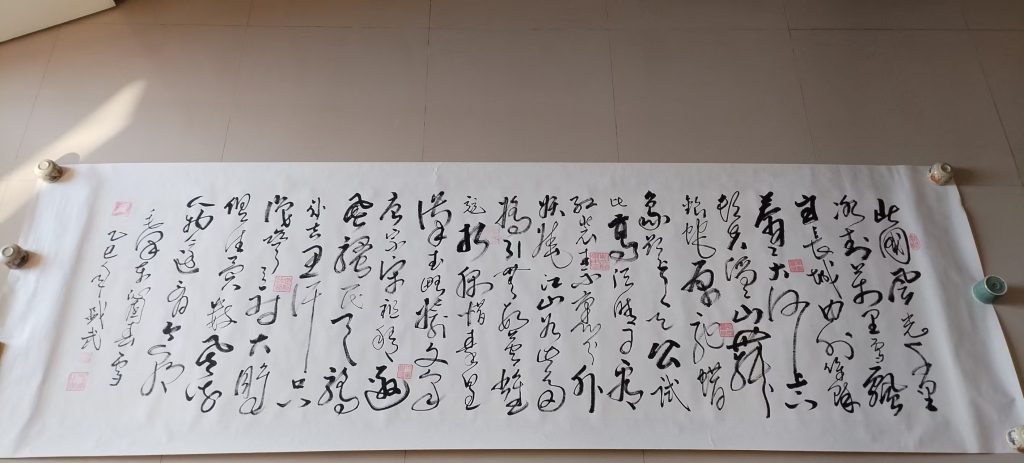 北國风光千里
冰封萬里雪飄
望長城内外惟餘
莽莽大河上下
顿失滔滔山舞
银蛇原驰蜡
象欲与天公試
比高须晴日看
红装素裹分外
妖娆江山如此多
娇引無数英雄
竞折腰惜秦皇
漢武略输文采
唐宗宋祖稍逊
風骚一代天骄
成吉思汗只
識弯弓射大雕
俱往矣数风流
人物還看今朝
毛泽东沁园春雪
乙巳